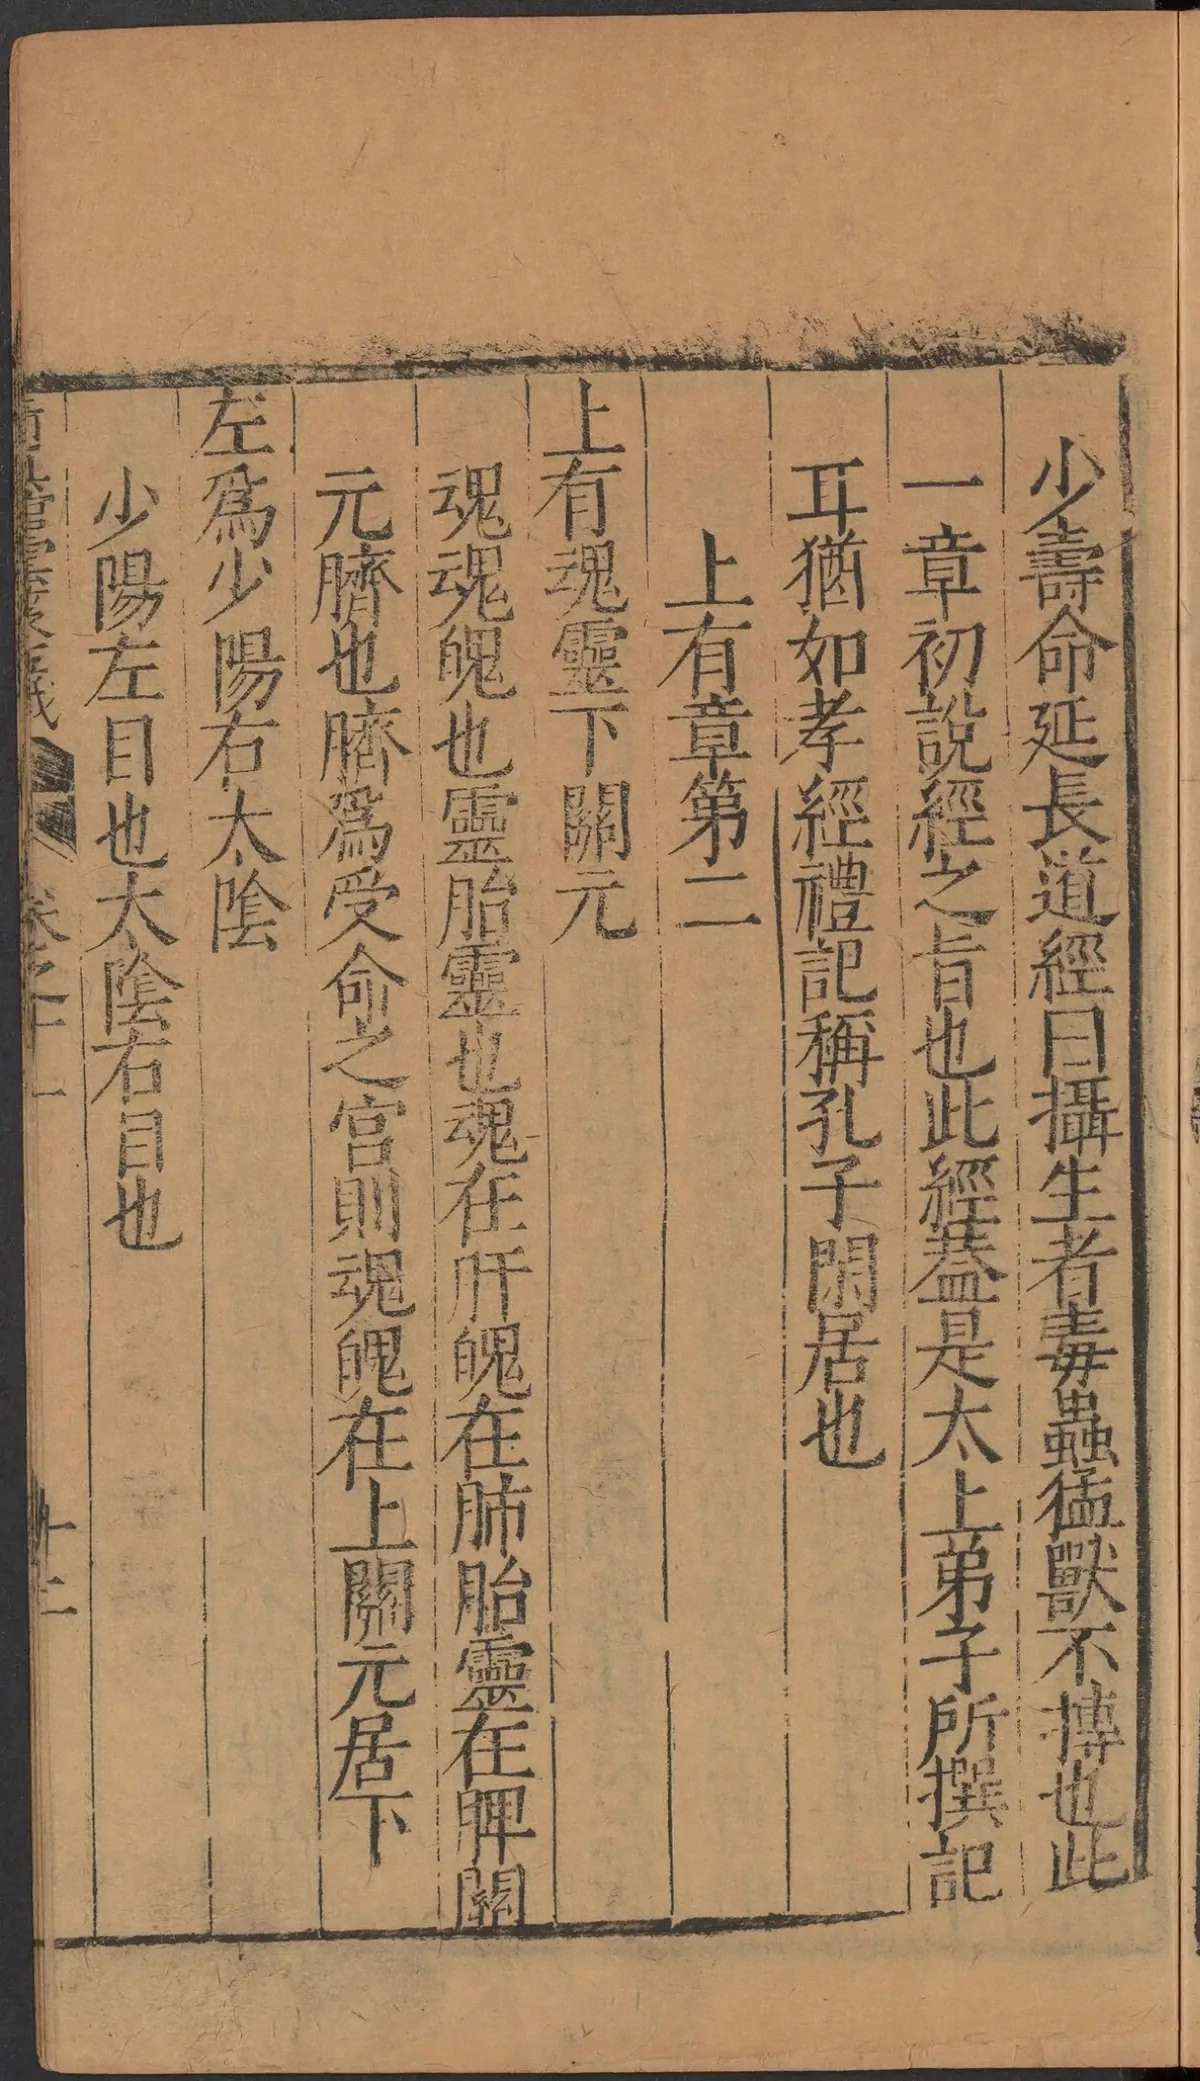 少壽命延長道經曰攝生者毒蟲猛獸不摶也此
一章初說經之旨也此經葢是太上弟子所撰記
耳猶如孝經禮記稱孔子閒居也
上有章第二
上有魂靈下關元
魂魂魄也靈胎靈也魂在肝魄在肺胎靈在脾關
元臍也臍爲受命之宮則魂魄在上關元居下
左爲少陽右太陰
少陽左目也太陰右目也
卷之十一
十二